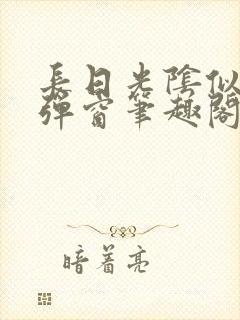 長日光陰似
彈窗筆趣閣
暗着亮